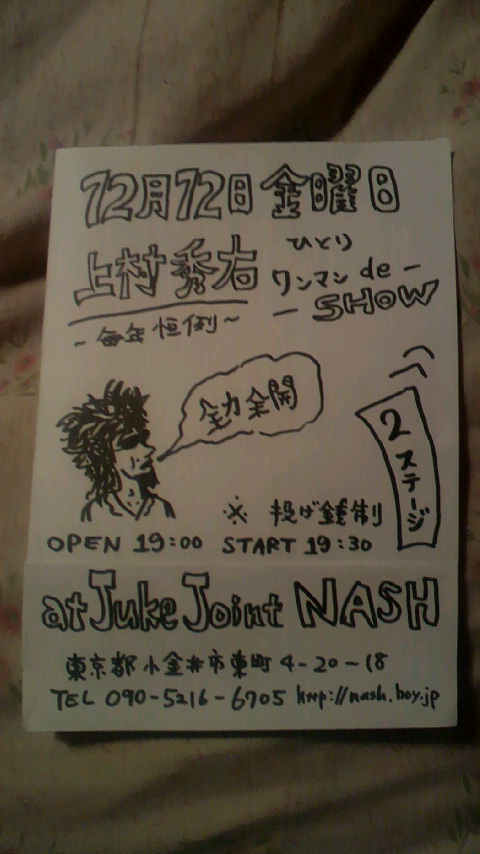 12月12日 金曜日
上村秀右
ひとり
ワンマン de -
- SHOW
~ 毎年恒例 ~
全力全開
2ステージ
※ 投げ銭制
OPEN 19:00 START 19:30
at Juke Joint NASH
東京都小金井市東町4-20-18
TEL 090-5216-6705 http://nash.boy.jp